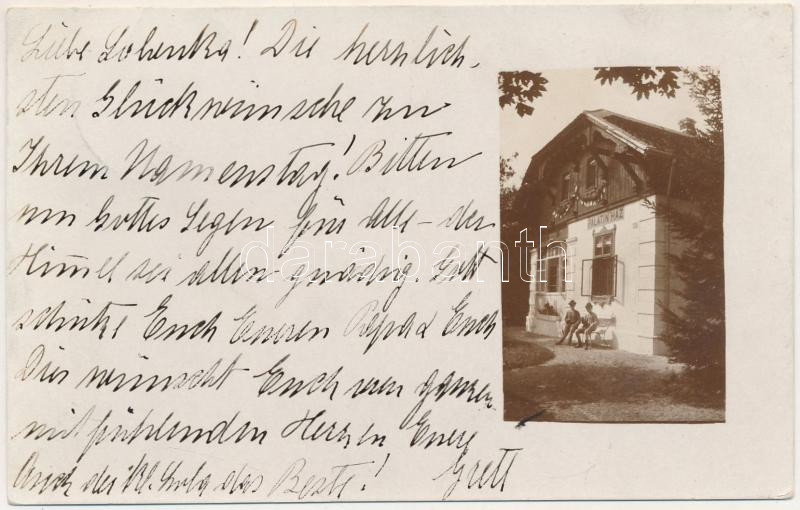 Liebe Lobenka! Die herrlich-
sten Glückwünsche zu
Ihrem Namenstag! Bitten
um Gottes Segen für Alle – der
Himmel sei allen gnädig. Gott
schütze Euch Eueren Papa & Euch
Dies wünscht Euch von ganzen
mitfühlenden Herzen Euere
Grett
Auch der kl. das Beste!
PALATIN HÁZ
darabanth